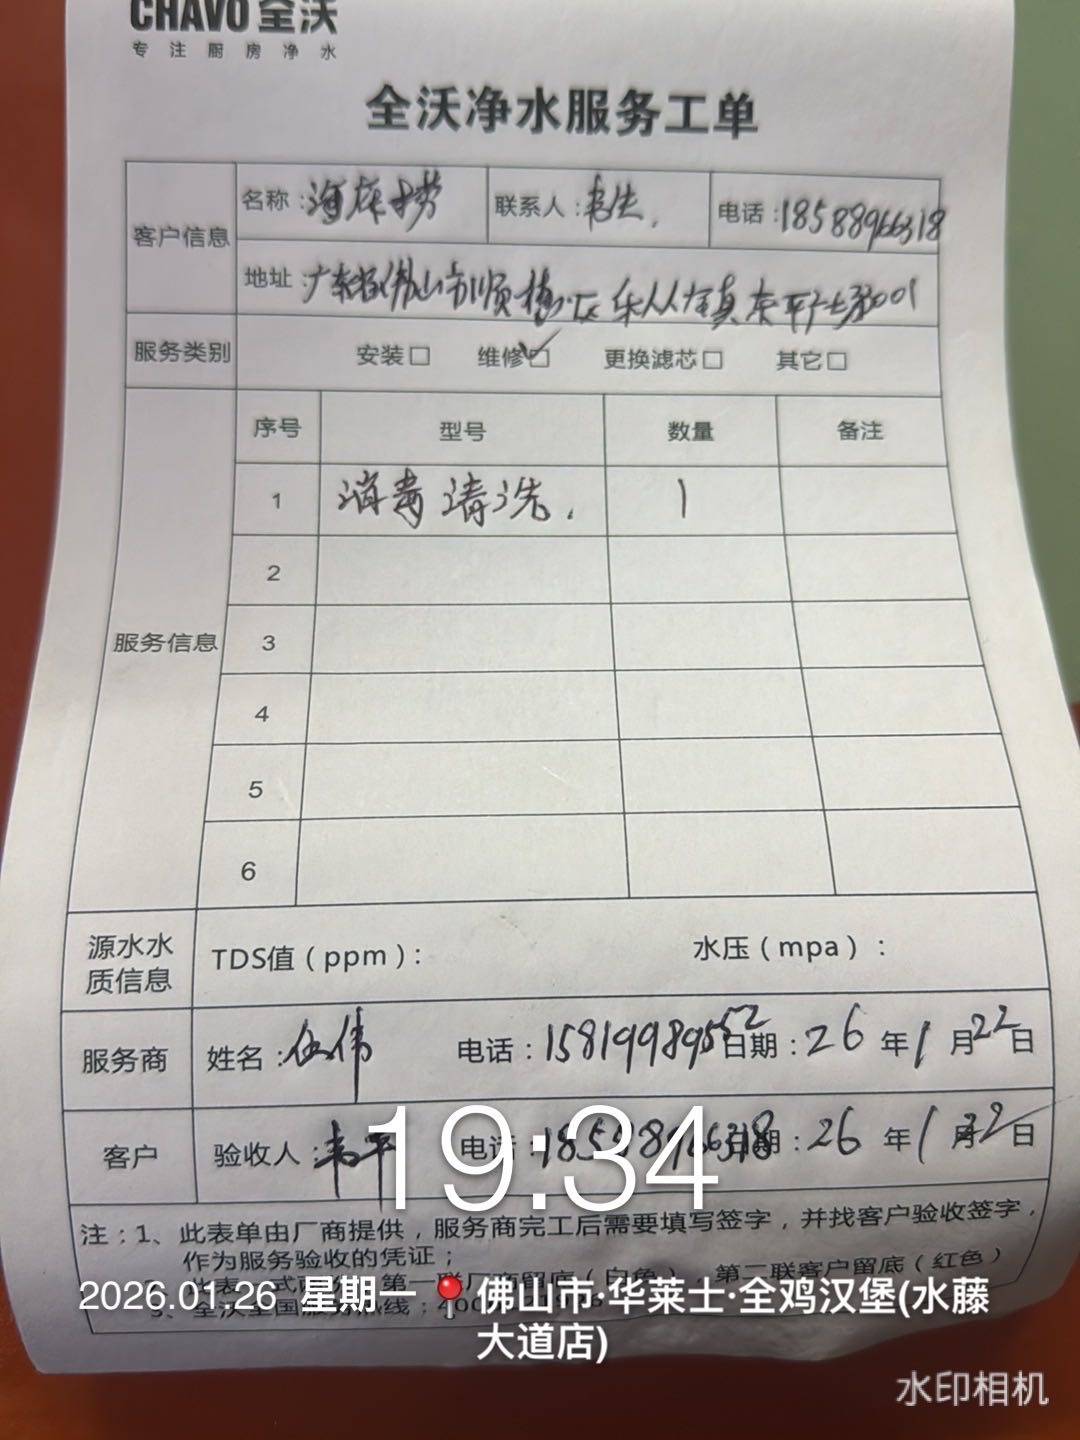 CHAVO 全沃
专注厨房净水
全沃净水服务工单
客户信息 名称：海底捞 联系人：韦生. 电话：18588966318
地址：广东省佛山市顺德区乐从镇
服务类别 安装□ 维修☑ 更换滤芯□ 其它□
服务信息 序号 型号 数量 备注
1 消毒清洗. 1
2
3
4
5
6
源水水质信息 TDS值（ppm）： 水压（mpa）：
服务商 姓名：伍伟 电话：15819989552 日期：26年1月22日
客户 验收人：韦平 电话： 日期：26年1月22日
19:34
注：1、此表单由厂商提供，服务商完工后需要填写签字，并找客户验收签字，
作为服务验收的凭证；
第一联厂商留底（白色），第二联客户留底（红色）
3、全沃全国服务热线：400
2026.01.26 星期一 佛山市·华莱士·全鸡汉堡(水藤
大道店)
水印相机